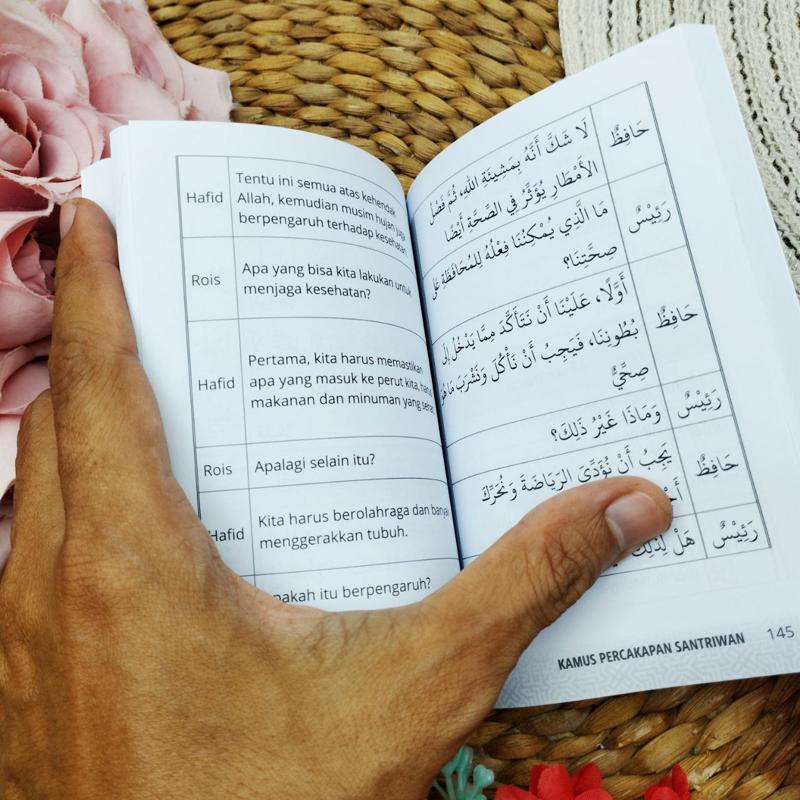 Hafid
Tentu ini semua atas kehendak
Allah, kemudian musim hujan juga
berpengaruh terhadap kesehatan
Rois
Apa yang bisa kita lakukan untuk
menjaga kesehatan?
Hafid
Pertama, kita harus memastikan
apa yang masuk ke perut kita,
makanan dan minuman yang
Rois
Apalagi selain itu?
Hafid
Kita harus berolahraga dan
menggerakkan tubuh.
itu berpengaruh?
حَافِظٌ
لَا شَكَّ أَنَّهُ بِمَشِيْئَةِ اللهِ، ثُمَّ فَصْلُ
الأَمْطَارِ يُؤَثِّرُ فِي الصِّحَّةِ أَيْضًا
رَئِيْسٌ
مَا الَّذِي يُمْكِنُنَا فِعْلُهُ لِلْمُحَافَظَةِ عَلَى
صِحَّتِنَا؟
حَافِظٌ
أَوَّلًا، عَلَيْنَا أَنْ نَتَأَكَّدَ مِمَّا يَدْخُلُ إِلَى
بُطُونِنَا، فَيَجِبُ أَنْ نَأْكُلَ وَنَشْرَبَ مَا هُوَ
صِحِّيٌّ
رَئِيْسٌ
وَمَاذَا غَيْرُ ذَلِكَ؟
حَافِظٌ
يَجِبُ أَنْ نُؤَدِّيَ الرِّيَاضَةَ وَنُحَرِّكَ
رَئِيْسٌ
هَلْ لِذَلِكَ
KAMUS PERCAKAPAN SANTRIWAN 145